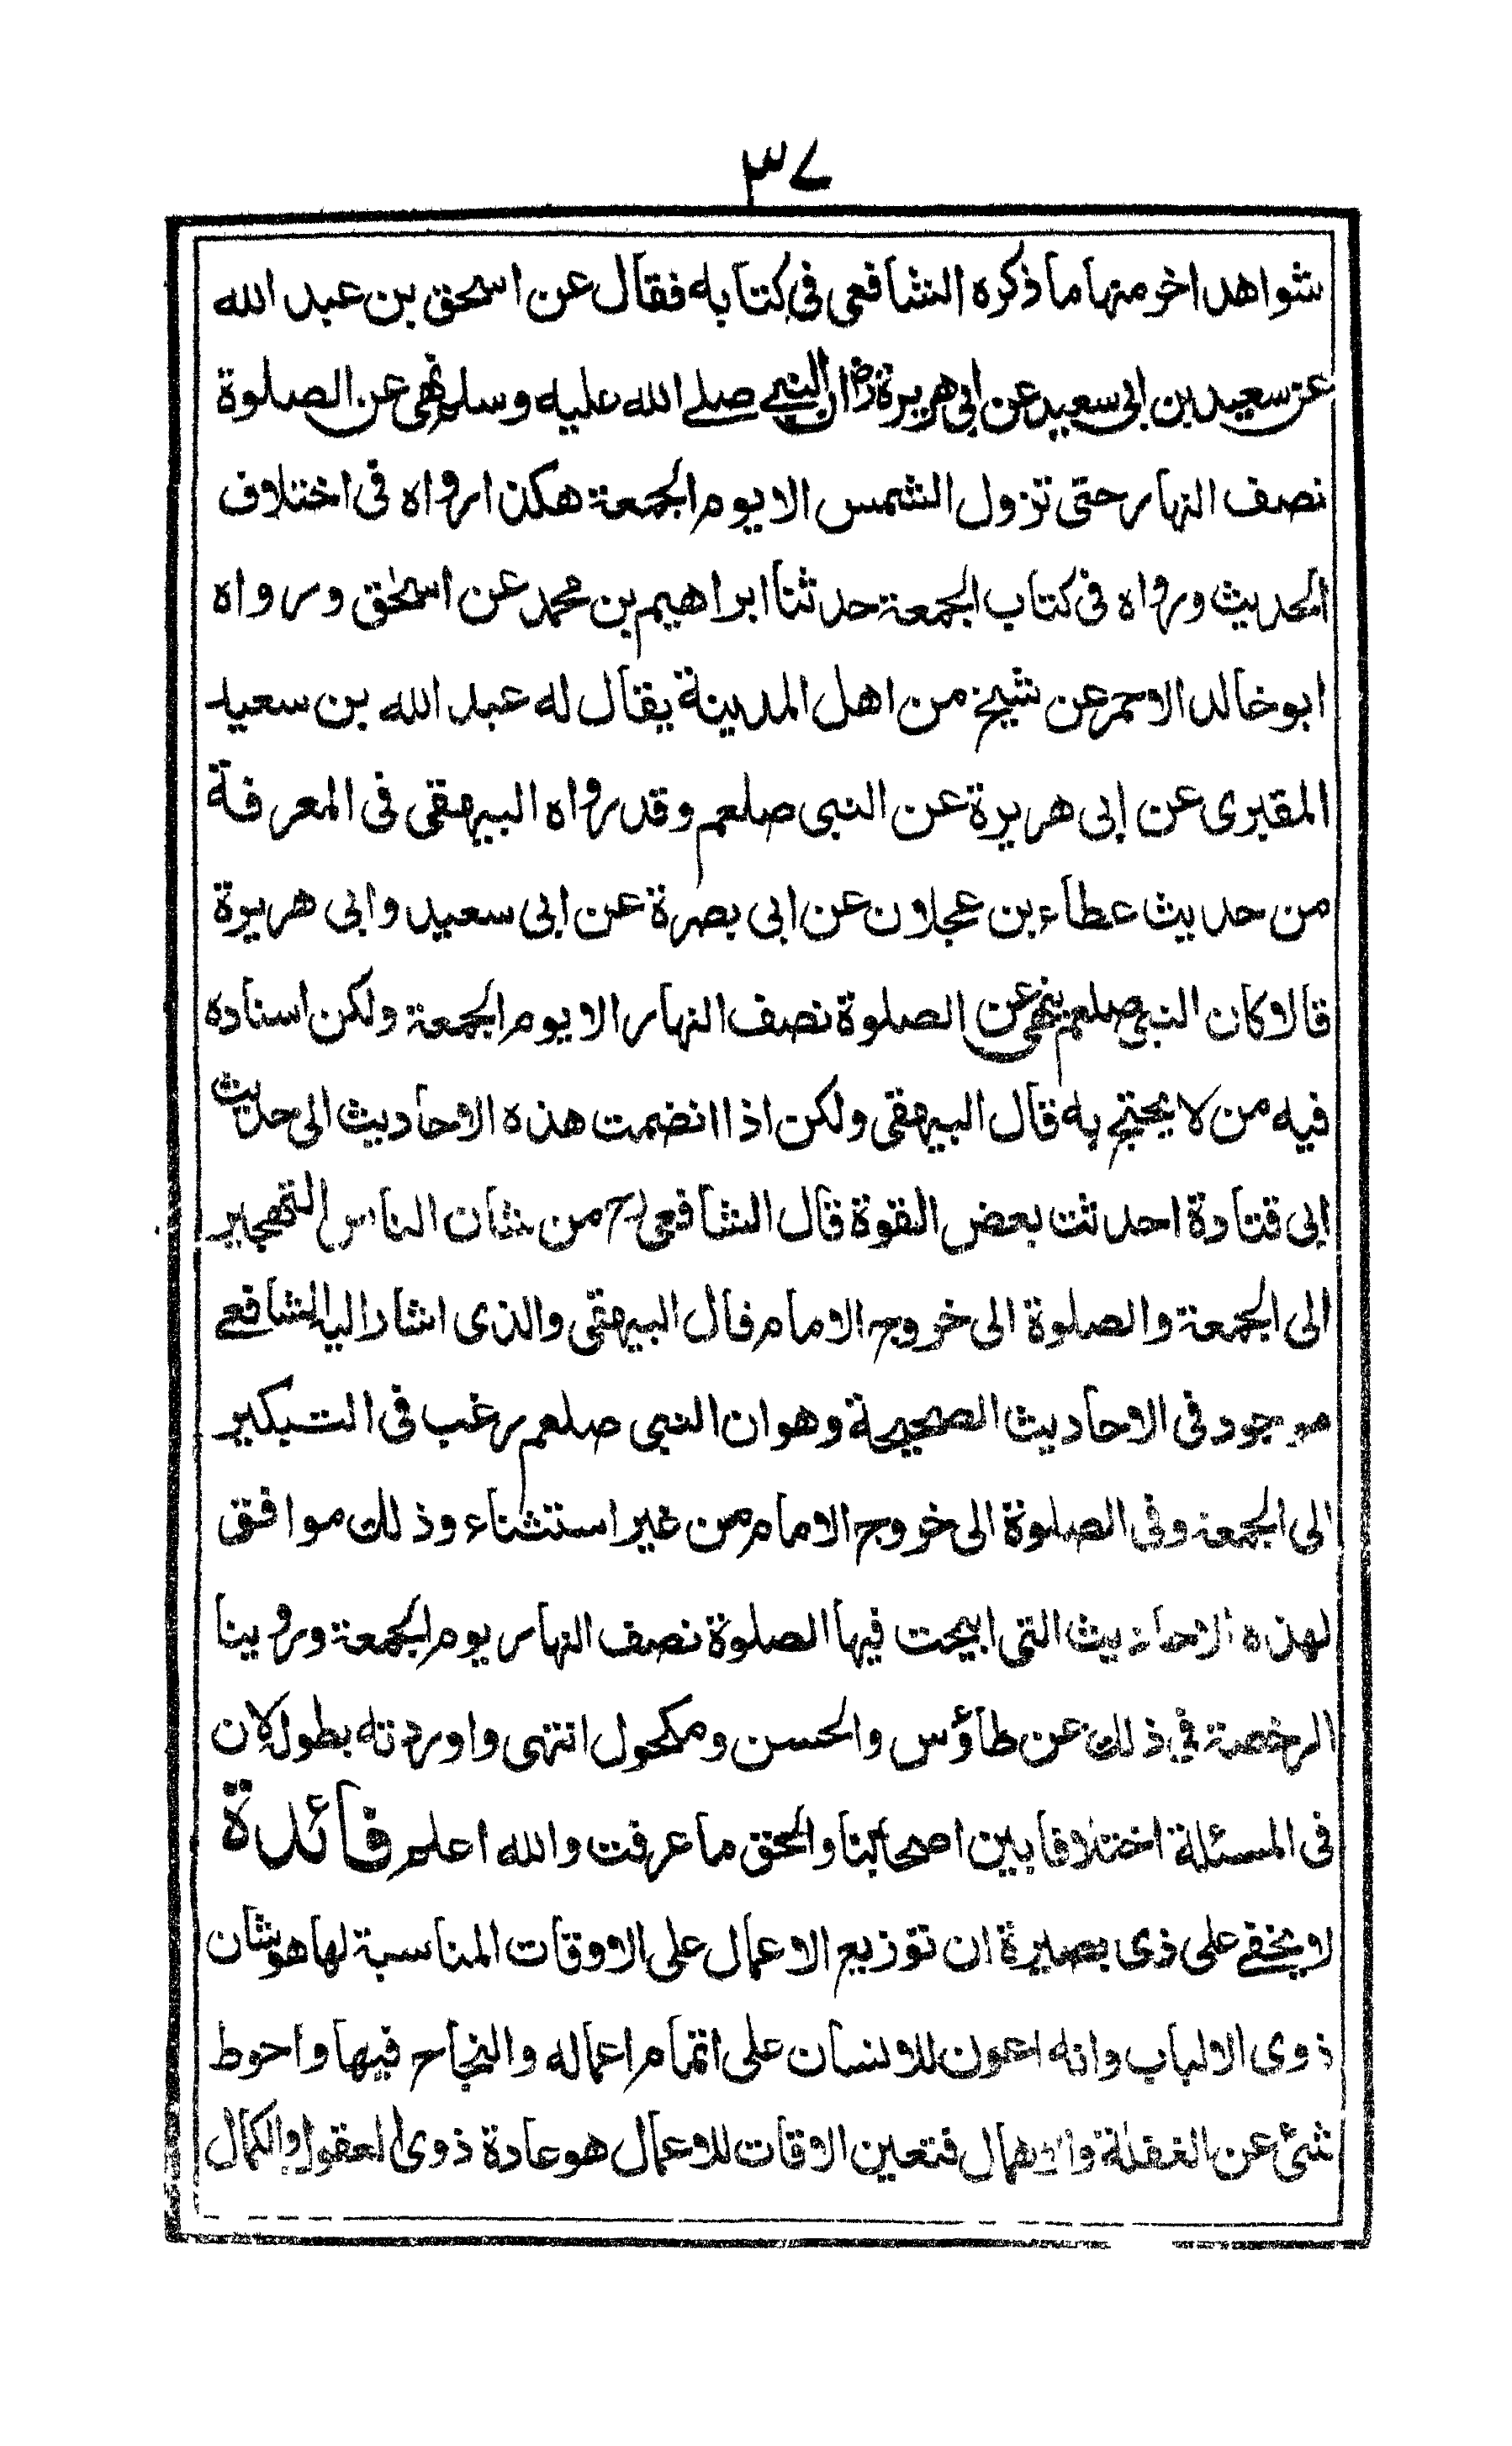 ٣٧
شواهد اخر منها ما ذكره الشافعى فى كتابه فقال عن اسحق بن عبد الله
عن سعيد بن ابى سعيد عن ابى هريرة رض ان النبى صلى الله عليه وسلم نهى عن الصلوة
نصف النهار حتى تزول الشمس الا يوم الجمعة هكذا رواه فى اختلاف
الحديث ورواه فى كتاب الجمعة حدثنا ابراهيم بن محمد عن اسحٰق ورواه
ابو خالد الاحمر عن شيخ من اهل المدينة يقال له عبد الله بن سعيد
المقبرى عن ابى هريرة عن النبى صلعم وقد رواه البيهقى فى المعرفة
من حديث عطاء بن عجلان عن ابى بصرة عن ابى سعيد وابى هريرة
قالا كان النبى صلعم ينهى عن الصلوة نصف النهار الا يوم الجمعة ولكن اسناده
فيه من لا يحتج به قال البيهقى ولكن اذا انضمت هذه الاحاديث الى حديث
ابى قتادة احدثت بعض القوة قال الشافعى رح من شان الناس التهجير
الى الجمعة والصلوة الى خروج الامام قال البيهقى والذى اشار اليه الشافعى
موجود فى الاحاديث الصحيحة وهو ان النبى صلعم رغب فى التبكير
الى الجمعة وفى الصلوة الى خروج الامام من غير استثناء وذلك موافق
لهذه الاحاديث التى ابيحت فيها الصلوة نصف النهار يوم الجمعة وروينا
الرخصة فى ذلك عن طاؤس والحسن ومكحول انتهى واوردته بطوله لان
فى المسئلة اختلافا بين اصحابنا والحق ما عرفت والله اعلم فائدة
لا يخفى على ذى بصيرة ان توزيع الاعمال على الاوقات المناسبة لها هو شان
ذوى الالباب وانه اعون للانسان على اتمام اعماله والنجاح فيها واحوط
شئ عن الغفلة والاهمال فتعين الاقات للاعمال هو عادة ذوى العقول والكمال